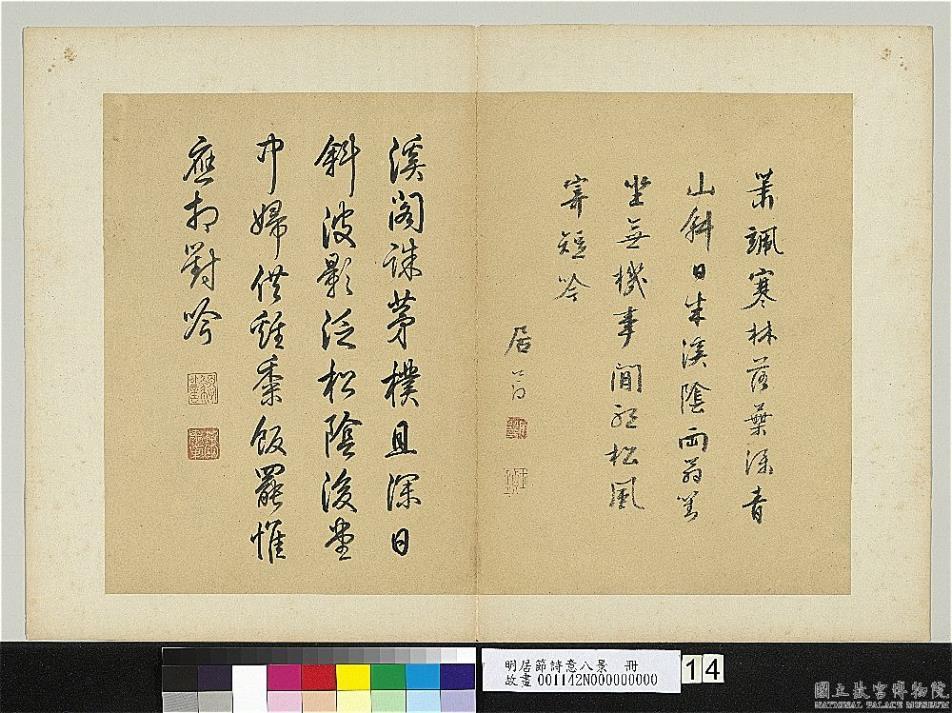 蕭颯寒林落葉深青
山斜日半溪陰兩翁對
坐無機事閒聽松風
寄短吟
居節
溪閣誅茅樸且深日
斜波影泛松陰後堂
中婦供雞黍飯罷惟
應相對吟
明居節詩意八景 冊
故畫 001142N000000000
14
國立故宮博物院
NATIONAL PALACE MUSEUM